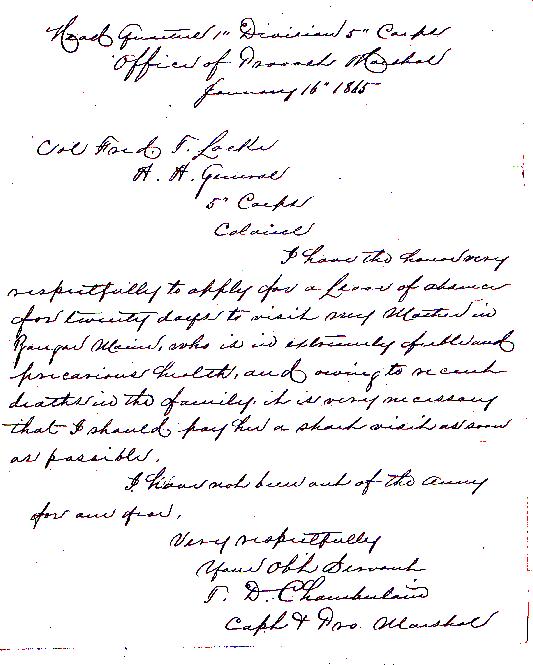 Head Quarters 1" Division 5" Corps
Office of Provost Marshal
January 16" 1865
Col Fred. T. Locke
A. A. General
5" Corps
Colonel
I have the honor very
respectfully to apply for a Leave of absence
for twenty days to visit my Mother in
Bangor Maine, who is in extremely feeble and
precarious health, and owing to recent
deaths in the family it is very necessary
that I should pay her a short visit as soon
as possible.
I have not been out of the Army
for one year.
Very respectfully
Your Obt Servant
T. D. Chamberlain
Capt & Pro. Marshal